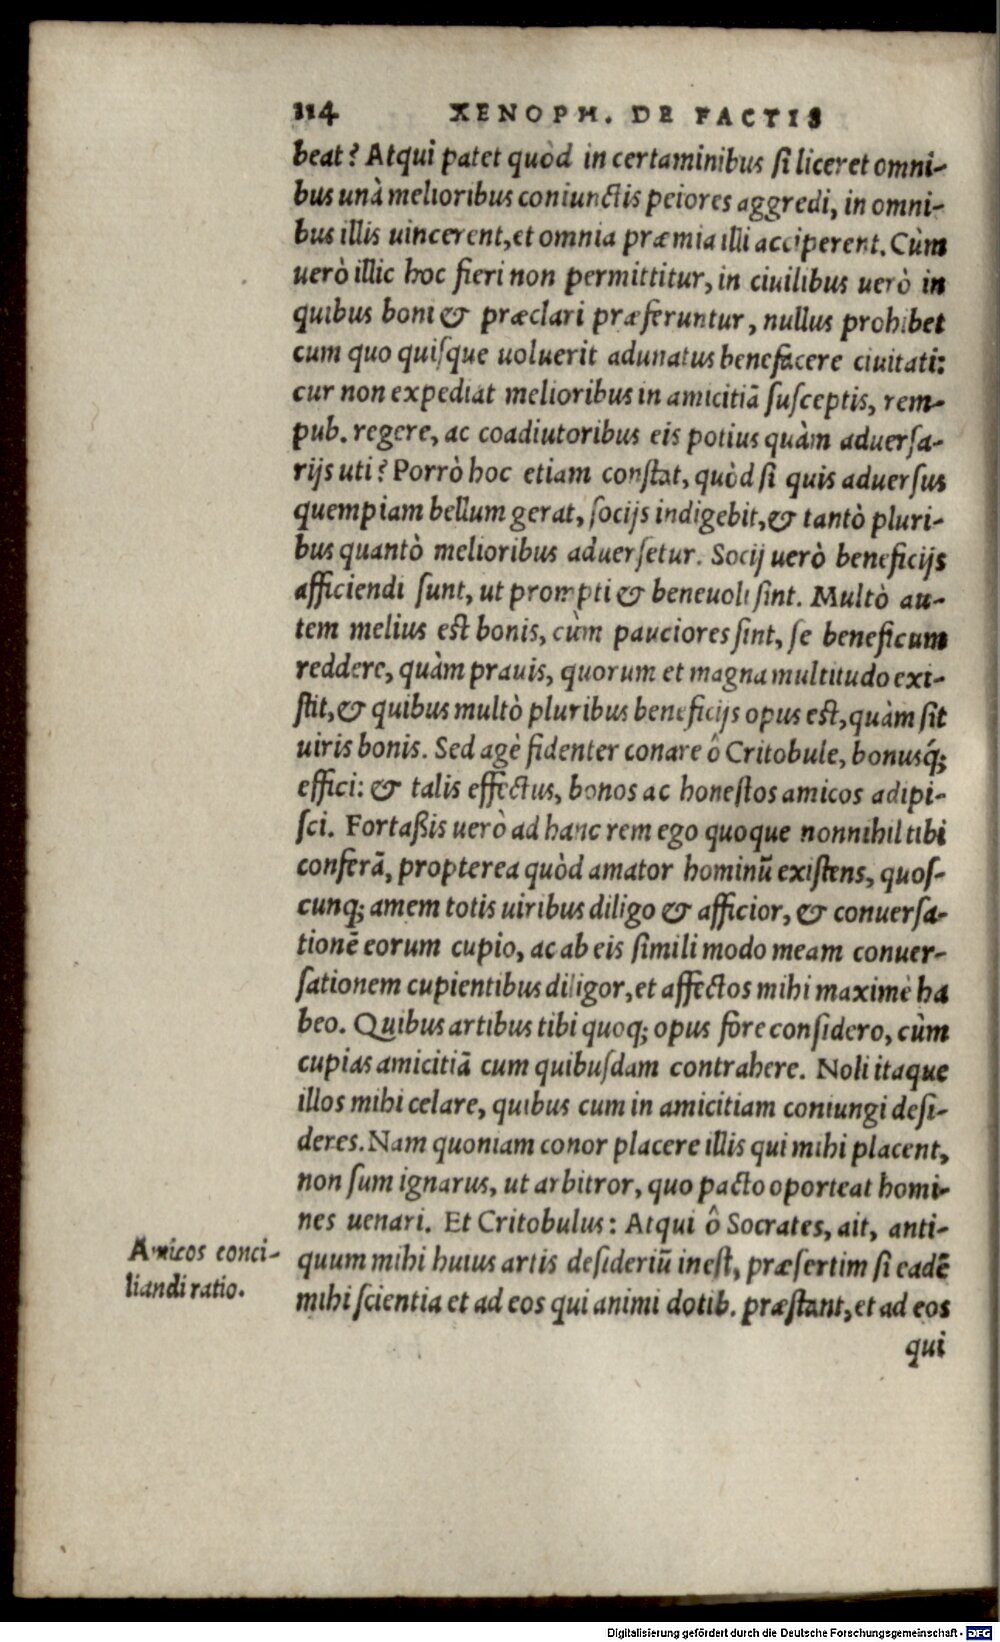 114 XENOPH. DE FACTIS
beat? Atqui patet quòd in certaminibus si liceret omni-
bus unà melioribus coniunctis peiores aggredi, in omni-
bus illis uincerent, et omnia præmia illi acciperent. Cùm
uerò illic hoc fieri non permittitur, in ciuilibus uerò in
quibus boni & præclari præferuntur, nullus prohibet
cum quo quisque uoluerit adunatus benefacere ciuitati:
cur non expediat melioribus in amicitiā susceptis, rem-
pub. regere, ac coadiutoribus eis potius quàm aduersa-
rijs uti? Porrò hoc etiam constat, quòd si quis aduersus
quempiam bellum gerat, socijs indigebit, & tantò pluri-
bus quantò melioribus aduersetur. Socij uerò beneficijs
afficiendi sunt, ut prompti & beneuoli sint. Multò au-
tem melius est bonis, cùm pauciores sint, se beneficum
reddere, quàm prauis, quorum et magna multitudo exi-
stit, & quibus multò pluribus beneficijs opus est, quàm sit
uiris bonis. Sed agè fidenter conare ô Critobule, bonusq́;
effici: & talis effectus, bonos ac honestos amicos adipi-
sci. Fortaßis uerò ad hanc rem ego quoque nonnihil tibi
conferā, propterea quòd amator hominū existens, quos-
cunq; amem totis uiribus diligo & afficior, & conuersa-
tionē eorum cupio, ac ab eis simili modo meam conuer-
sationem cupientibus diligor, et affectos mihi maximè ha
beo. Quibus artibus tibi quoq; opus fore considero, cùm
cupias amicitiā cum quibusdam contrahere. Noli itaque
illos mihi celare, quibus cum in amicitiam coniungi desi-
deres. Nam quoniam conor placere illis qui mihi placent,
non sum ignarus, ut arbitror, quo pacto oporteat homi-
nes uenari. Et Critobulus: Atqui ô Socrates, ait, anti-
quum mihi huius artis desideriū inest, præsertim si eadē
mihi scientia et ad eos qui animi dotib. præstant, et ad eos
qui
Amicos conci-
liandi ratio.
Digitalisierung gefördert durch die Deutsche Forschungsgemeinschaft - DFG